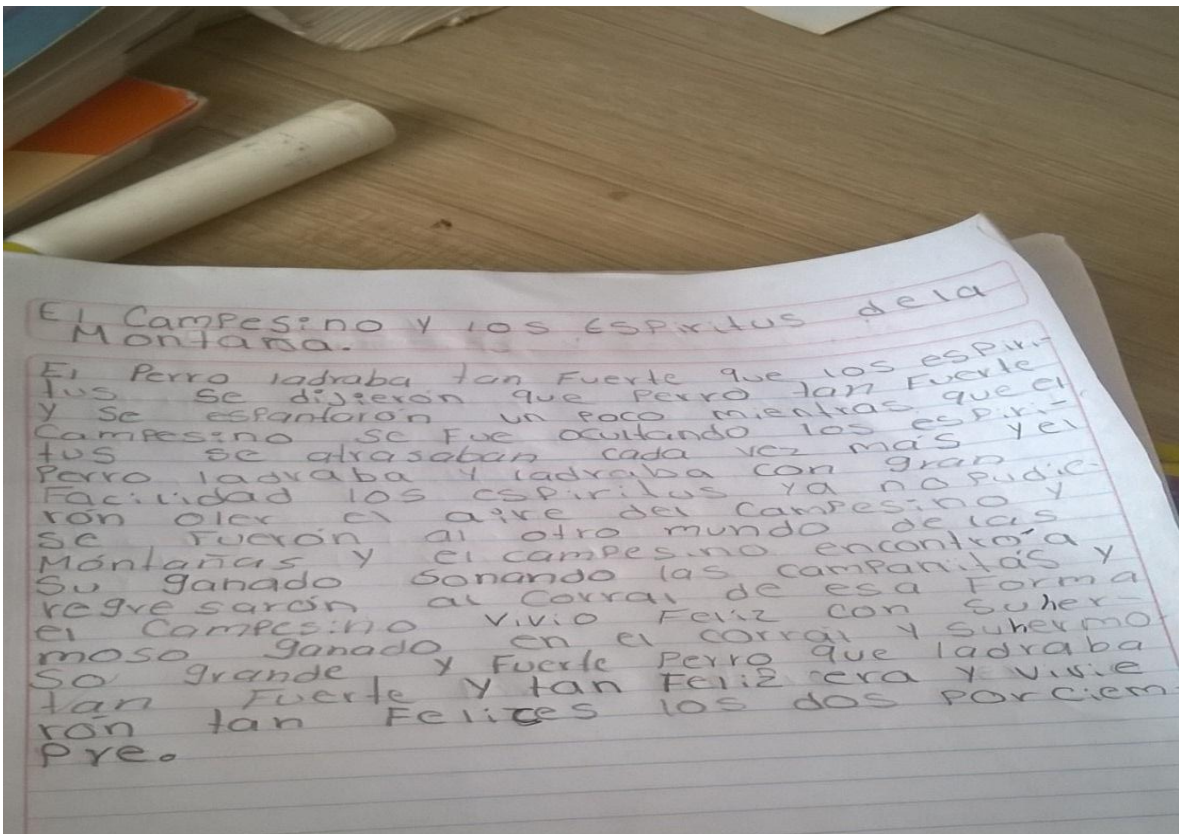 El Campesino y los Espiritus de la
Montaña.
El Perro ladraba tan Fuerte que los espiri-
tus se dijeron que Perro tan Fuerte
y se espantarón un poco mientras que el
Campesino se Fue ocultando los espiri-
tus se atrasaban cada vez más y el
Perro ladraba y ladraba con gran
Facilidad los espiritus ya no pudie-
rón oler el aire del campesino y
se Fuerón al otro mundo de las
Móntañas y el campesino encontró a
Su ganado sonando las campanitas y
regresarón al corral de esa Forma
el Campesino vivio Feliz con su her-
moso ganado en el corral y su hermo-
so grande y Fuerte Perro que ladraba
tan Fuerte y tan Feliz era y vivie
rón tan Felices los dos por ciem
pre.